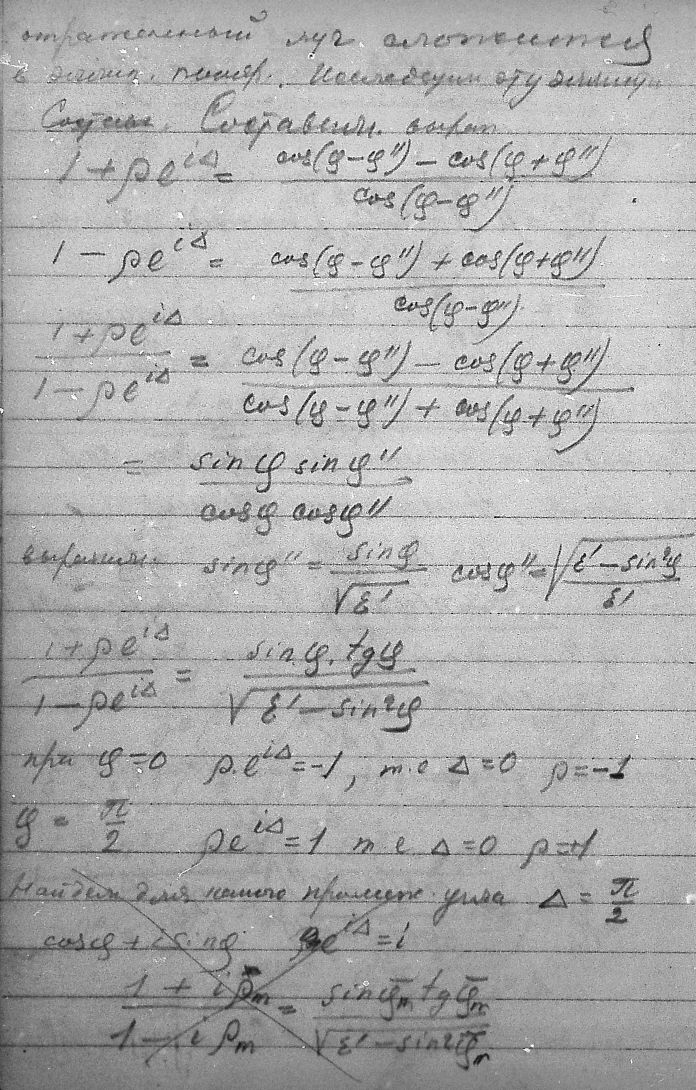 отраженный луч
в эллип. поляр. Исследуем эту эллипт
Состав. Составим выраж
1 + ρe^{iΔ} = (cos(φ-φ'') - cos(φ+φ''))/cos(φ-φ'')
1 - ρe^{iΔ} = (cos(φ-φ'') + cos(φ+φ''))/cos(φ-φ'')
(1+ρe^{iΔ})/(1-ρe^{iΔ}) = (cos(φ-φ'') - cos(φ+φ''))/(cos(φ-φ'') + cos(φ+φ''))
= sinφ sinφ''/cosφ cosφ''
sinφ'' = sinφ/√ε' cosφ'' = √((ε'-sin²φ)/ε')
(1+ρe^{iΔ})/(1-ρe^{iΔ}) = sinφ·tgφ/√(ε'-sin²φ)
при φ=0 ρ·e^{iΔ}=-1, т.е Δ=0 ρ=-1
φ = π/2 ρe^{iΔ}=1 т е Δ=0 ρ=+1
Найдем для какого промеж. угла Δ = π/2
cosφ + i sinφ e^{iΔ} = i
(1 + iρ̄_m)/(1 - iρ_m) = sinφ̄_m tgφ̄_m/√(ε'-sin²φ̄_m)